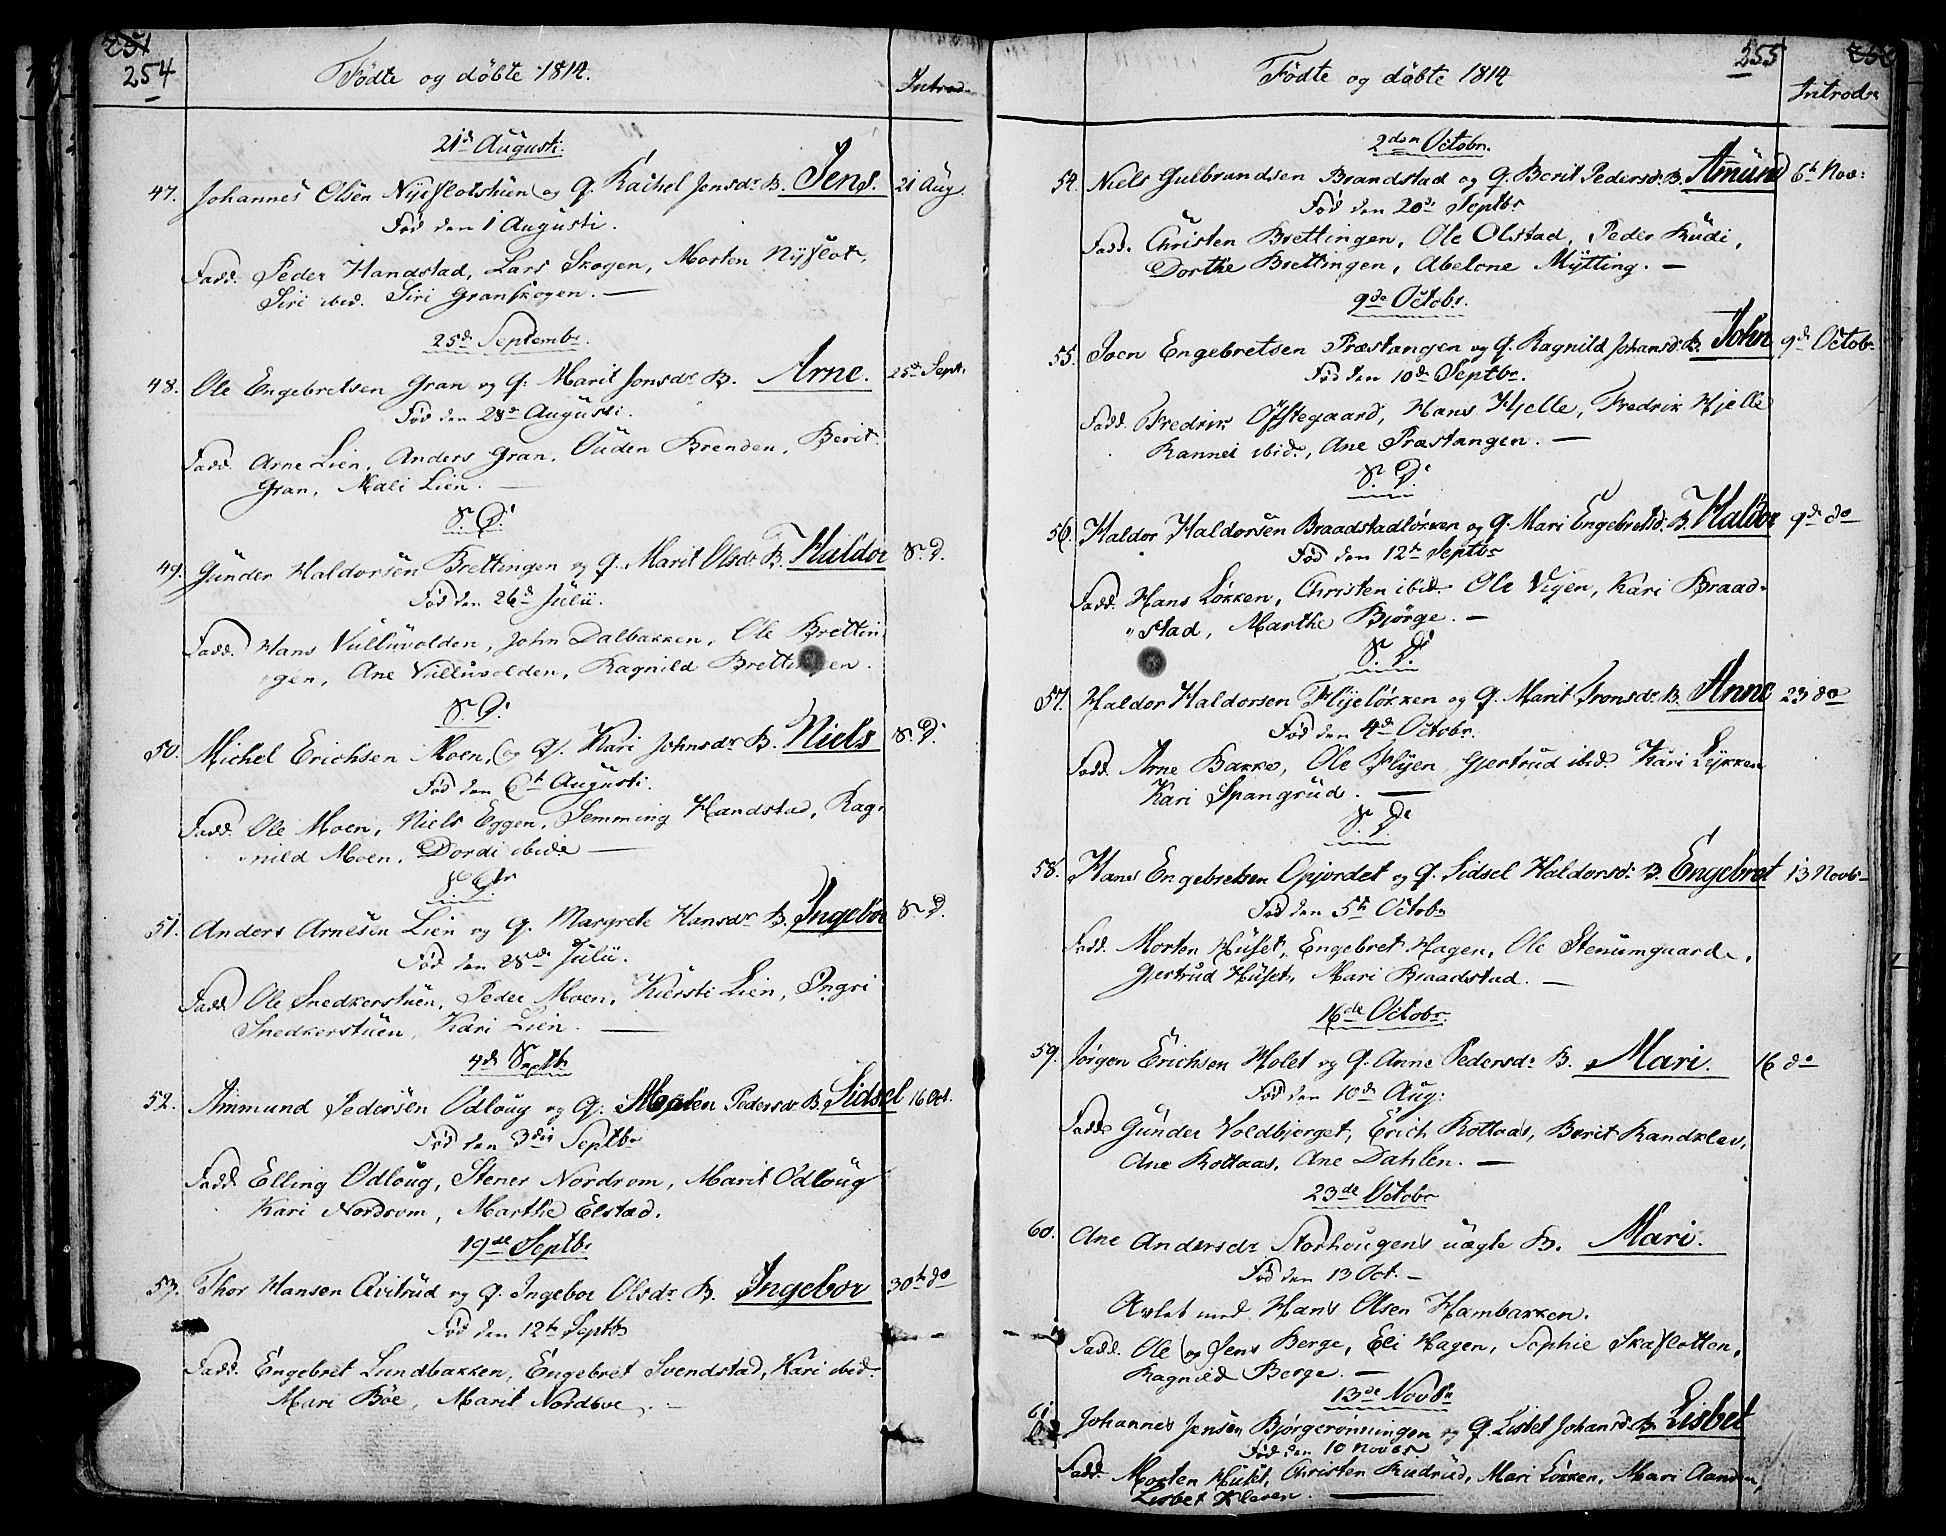 254
Fødte og døbte 1814.
Introd.
21d Augusti.
47. Johannes Olsen Nyeflotshuen og Q. Rachel Jensdr B. Jens. 21 Aug.
Fød den 1 Augusti.
Fadd. Peder Handstad, Lars Skogen, Morten Nyflot,
Siri ibid. Siri Granskogen. —
25d Septembr.
48. Ole Engebretsen Gran og Q. Marit Jonsdr B. Arne. 25d Sept.
Fød den 28d Augusti.
Fadd. Arne Lien, Anders Gran, Ouden Brenden, Berit
Gran, Mali Lien. —
S. D.
49. Gunder Haldorsen Brettingen og Q. Marit Olsdr B. Haldor S. D.
Fød den 26d Julii.
Fadd. Hans Vulluvolden, John Dalbakken, Ole Brettin
gen, Ane Vulluvolden, Ragnild Brettingen.
S. D.
50. Michel Erichsen Moen, og Q. Kari Johnsdr B. Niels S. D.
Fød den 6th Augusti.
Fadd. Ole Moen, Niels Eggen, Semming Handstad, Rag-
nild Moen, Dordi ibid. —
S. D.
51. Anders Arnesen Lien og Q. Margrete Hansdr B. Ingebor S. D.
Fød den 28de Julii.
Fadd. Ole Snedkerstuen, Peder Moen, Kiersti Lien, Ingri
Snedkerstuen, Kari Lien. —
4d Septb.
52. Ammund Pedersen Odloug og Q. Malen Pedersdr B. Sidsel 16 Oct.
Fød den 3die Septbr
Fadd. Elling Odloug, Stener Nordrom, Marit Odloug
Kari Nordrom, Marthe Elstad.
19de Septbr
53. Thor Hansen Qvitrud og Q. Ingebor Olsdr B. Ingebor 30th do
Fød den 12th Septb
Fadd. Engebret Lundbakken, Engebret Svendstad, Kari ibid.
Mari Bøe, Marit Nordboe. —
255
Fødte og døbte 1814
Introd.
2den Octobr.
54. Niels Gulbrandsen Brandstad og Q. Berit Pedersdr. B. Amund 6th Nov:
Fød den 20de Septbr
Fadd. Christen Brettingen, Ole Olstad, Peder Rudi,
Dorthe Brettingen, Abelone Mytting. —
9de Octobr.
55. Joen Engebretsen Præstangen og Q. Ragnild Johansd. B. John 9de Octob.
Fød den 10de Septbr.
Fadd. Fredrik Offstegaard, Hans Hjelle, Fredrik Hjelle
Rannei ibid., Ane Præstangen. —
S. D.
56. Haldor Haldorsen Braadstadløkken og Q. Mari Engebretsd. B. Haldor 9de do
Fød den 12th Septbr
Fadd. Hans Løkken, Christen ibid. Ole Vigen, Kari Braad-
stad, Marthe Bjørge. —
S. D.
57. Haldor Haldorsen Flyeløkken og Q. Marit Tronsdr. B. Anne 23 do
Fød den 4de Octobr.
Fadd. Arne Bakke, Ole Flyen, Gjertrud ibid. Kari Lykken
Kari Spangrud. —
S. D.
58. Hans Engebretsen Opjordet og Q. Sidsel Haldorsd. B. Engebret 13 Novb.
Fød den 5th Octob.
Fadd. Morten Huset, Engebret Hagen, Ole Stenumgaard,
Gjertrud Huset, Mari Braadstad. —
16de Octobr.
59. Jørgen Erichsen Holet og Q. Anne Pedersdr B. Mari. 16 do
Fød den 10de Aug:
Fadd. Gunder Voldbjerget, Erich Kottaas, Berit Randklev,
Ane Kottaas, Ane Dahlen. —
23de Octobr
60. Ane Andersdr Storhougens uægte B. Mari.
Fød den 13 Oct. —
Avlet med Hans Olsen Hambakken.
Fadd. Ole og Jens Berge, Eli Hagen, Sophie Skaflotten,
Ragnild Berge. —
13de Novbr
61 Johannes Jensen Bjørgerønningen og Q. Lisbet Johansd. B. Lisbet
Fød den 10 Novbr
Fadd. Morten Huset, Christen Rudrud, Mari Løkken, Mari Aanden,
Lisbet Kleven. —